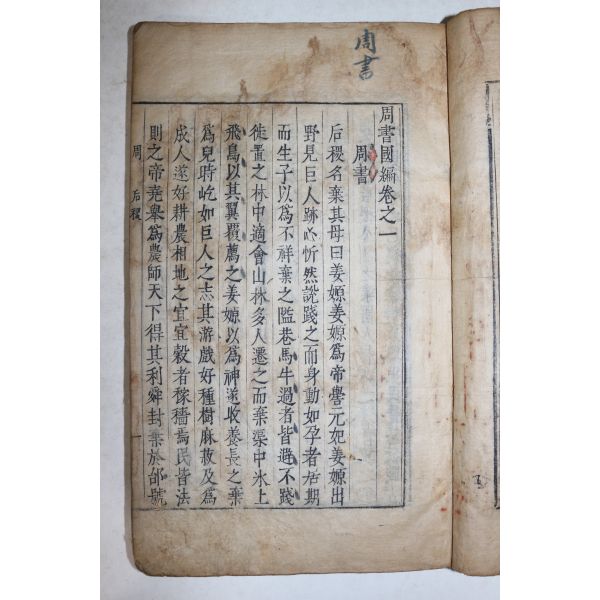 周書
周書國編卷之一
周書
后稷名棄其母曰姜嫄姜嫄爲帝嚳元妃姜嫄出
野見巨人跡心忻然說踐之而身動如孕者居期
而生子以爲不祥棄之隘巷馬牛過者皆避不踐
徙置之林中適會山林多人遷之而棄渠中氷上
飛鳥以其翼覆薦之姜嫄以爲神遂收養長之棄
爲兒時屹如巨人之志其游戱好種樹麻菽及爲
成人遂好耕農相地之宜宜穀者稼穡焉民皆法
則之帝堯舉爲農師天下得其利舜封棄於邰號
周 后稷
一